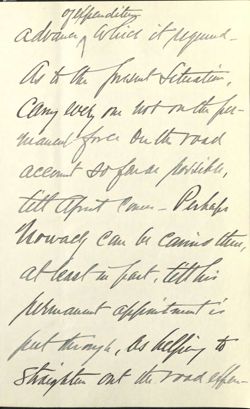 of expenditure
advance, which it required.
As to the present situation,
Carry every one not on the per-
manent force on the road
account so far as possible,
till April comes – Perhaps
Nowack can be carried there,
at least in part, till his
permanent appointment is
put through, as helping to
straighten out the road expen-